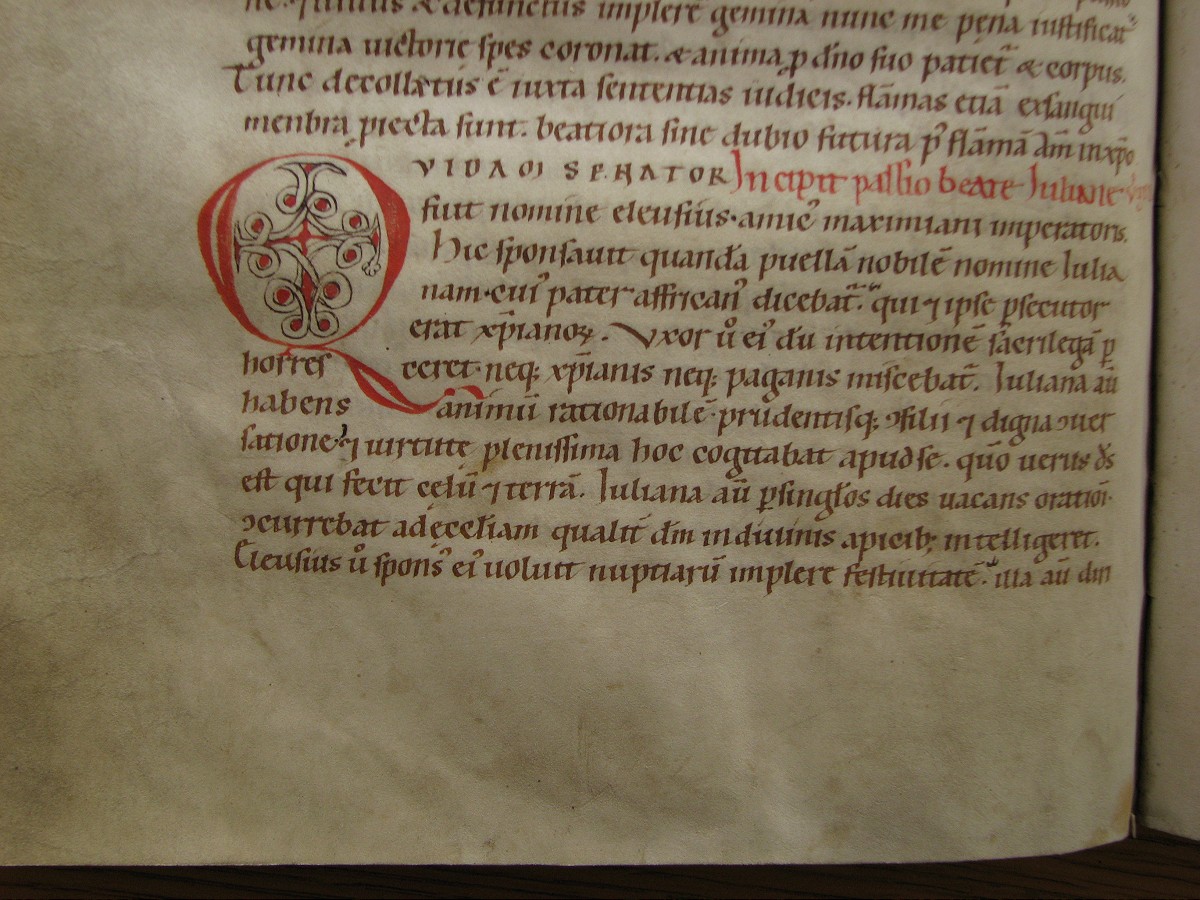 et defunctus implere gemina nunc me pena iustificat
gemina uictorie spes coronat. & anima p dn̄o suo patiet̄ & corpus.
Tunc decollatus ē iuxta sententias iudicis. flāmas etiā exsangui
menbra piecta sunt. beatiora sine dubio futura p⁹ flāmā am̄ in xp̄o
QVIDAM SENATOR Incipit passio beate Iuliane
fuit nomine eleusius. amic⁹ maximiani imperatoris.
Hic sponsauit quandā puellā nobilē nomine Iulia
nam. cui⁹ pater affrican⁹ dicebat̄. qui ⁊ ipse psecutor
erat xp̄ianoꝝ. Vxor ů ei⁹ dū intentionē sacrilegā ꝑ
horres ceret. neq; xp̄ianis neq; paganis miscebat̄. Iuliana aū
habens animū rationabilē prudentisq; ꝯsilii ⁊ digna ꝯuer
satione ⁊ uirtute plenissima hoc cogitabat apud se. quō uerus d̄s
est qui fecit celū ⁊ terrā. Iuliana aū ꝑ singłos dies uacans orationi
ꝯcurrebat ad eccłiam qualit̄ dm̄ in diuinis apicib; intelligeret.
Eleusius ů spons⁹ ei⁹ uoluit nuptiarū implere festiuitatē. illa aū dix